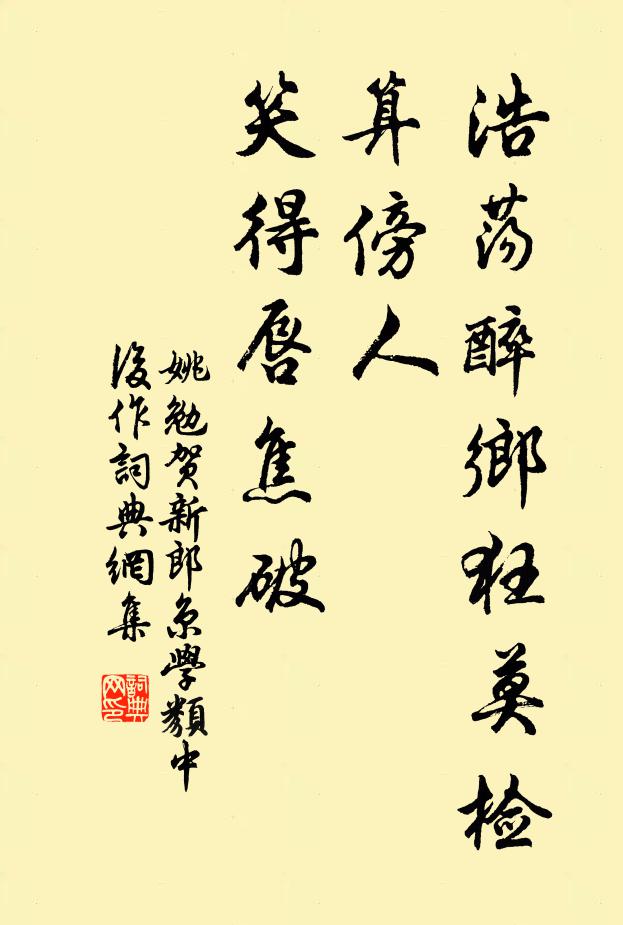 浩荡醉鄉狂莫检
算傍人
笑得唇焦破
姚勉贺新郎京學類中
後作詞典網集
詞典網印